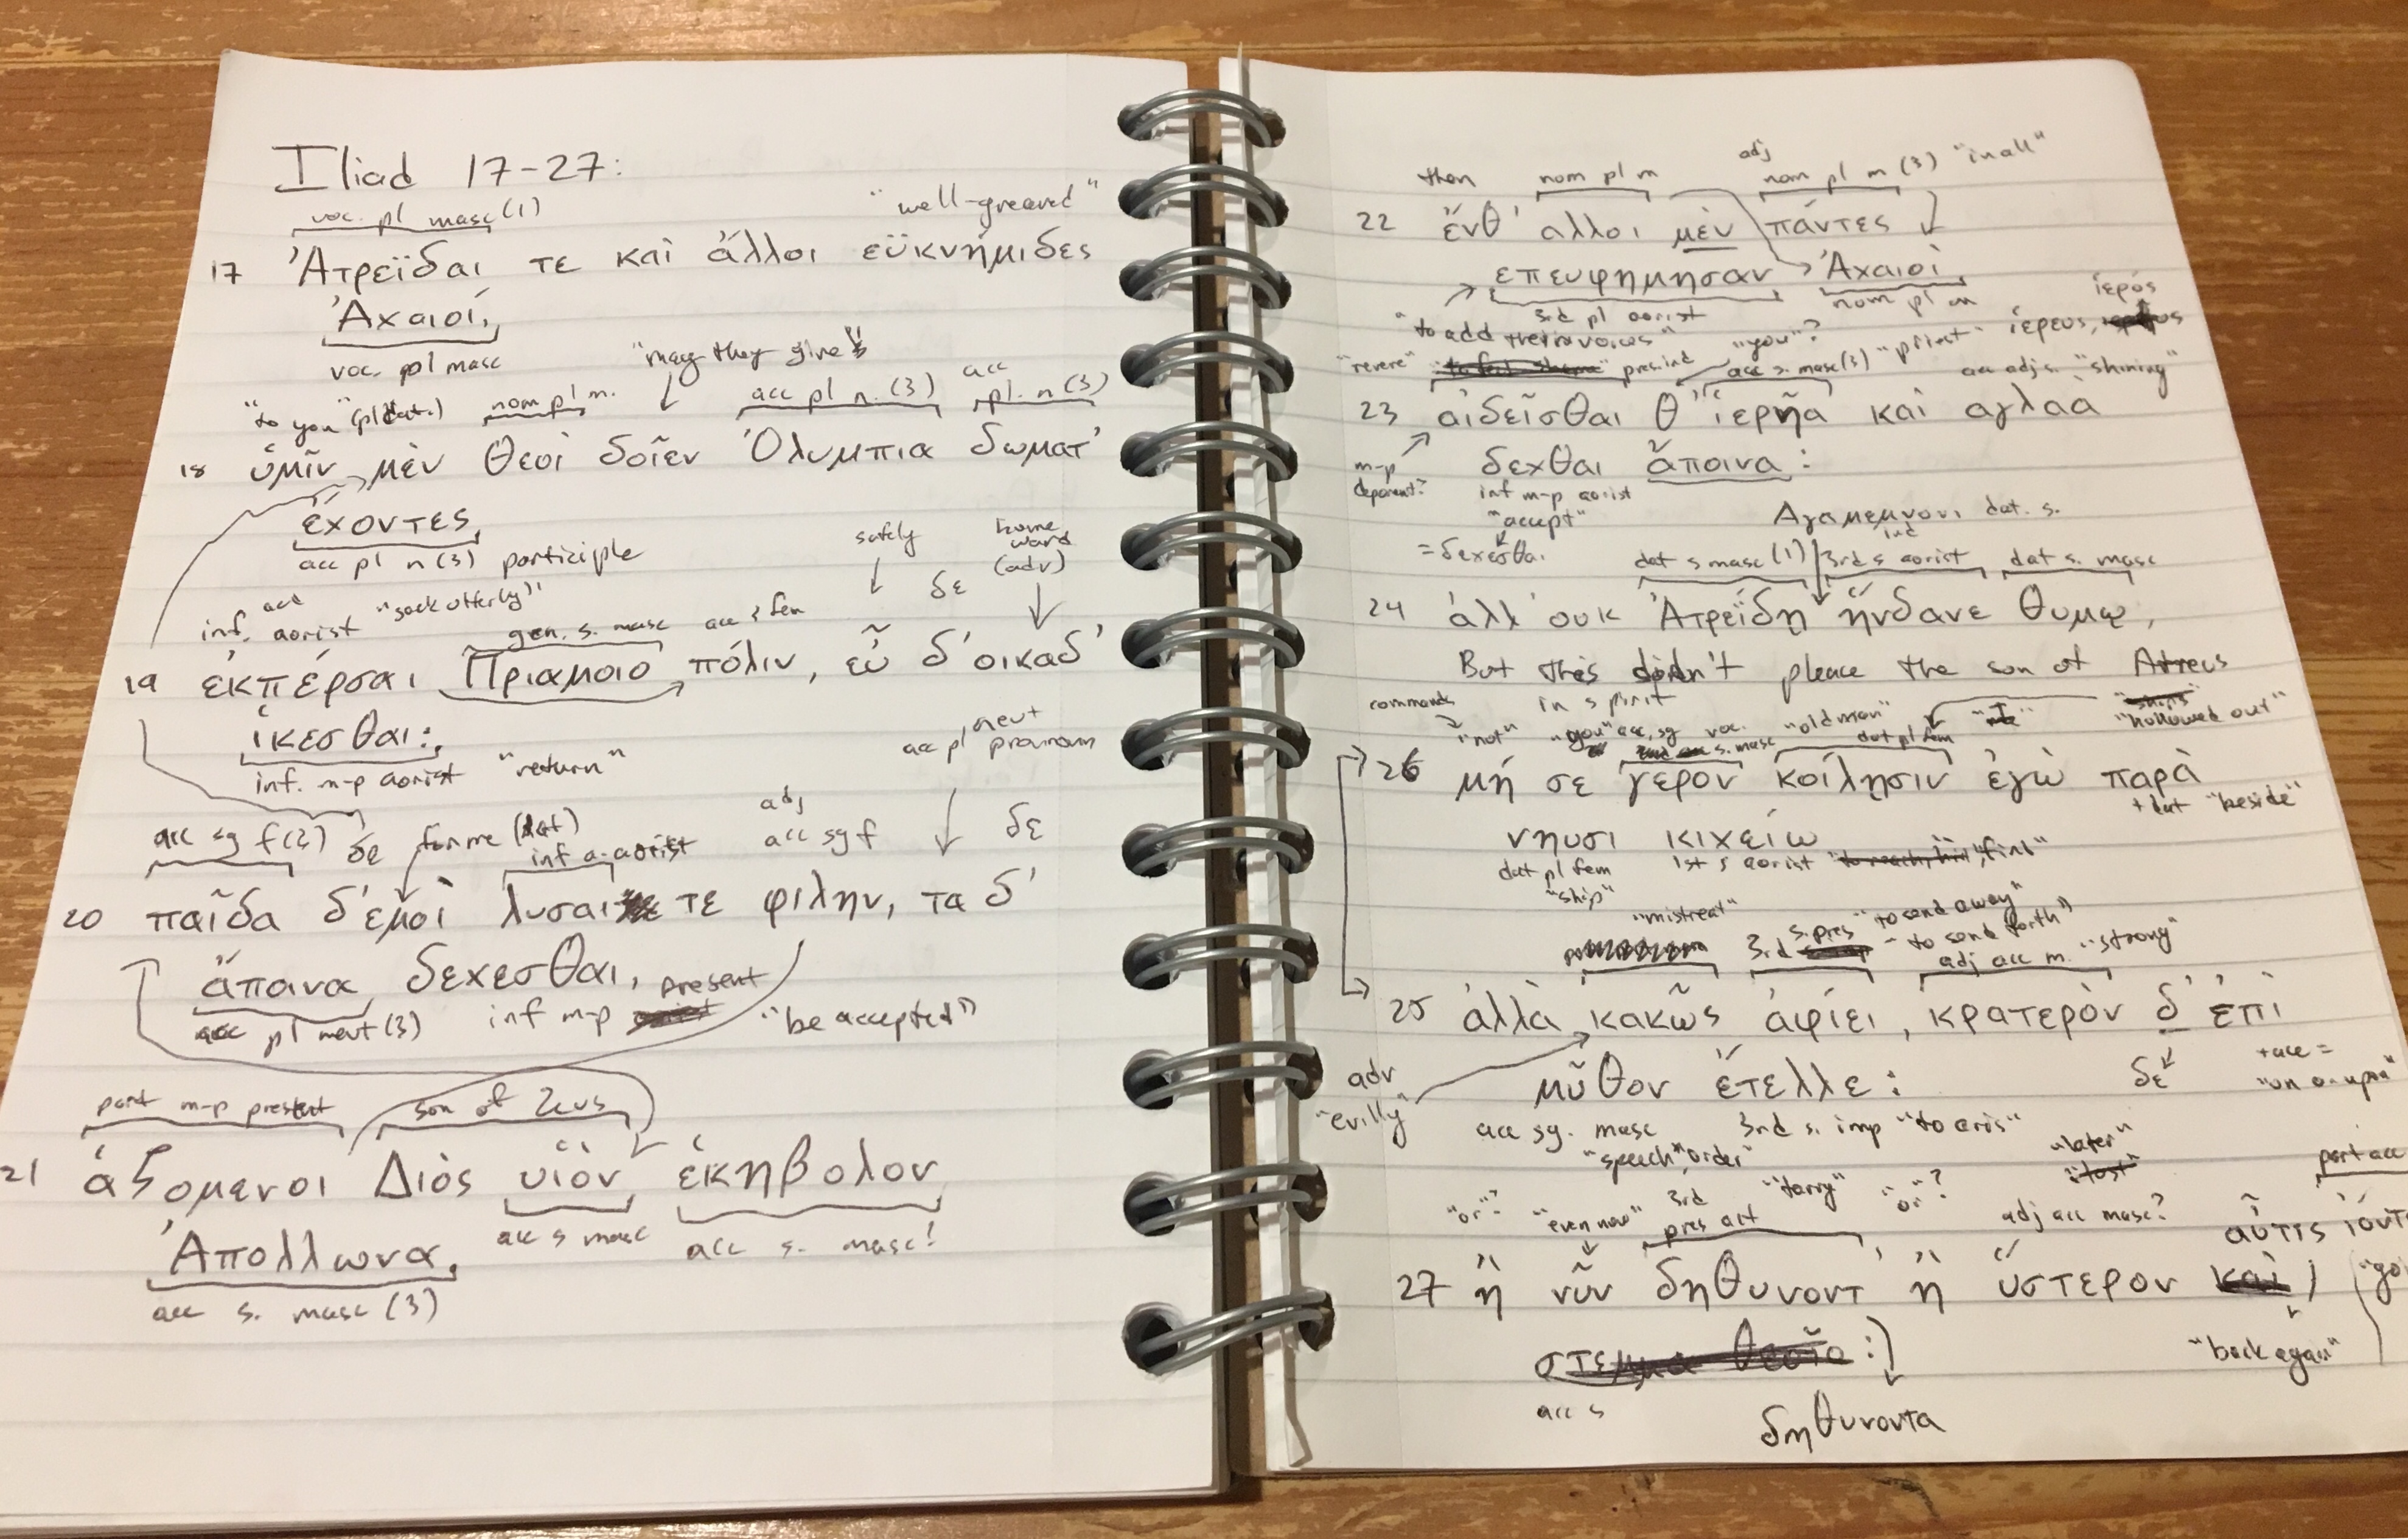 Iliad 17-27:
voc. pl masc (1) "well-greaved"
17 Ἀτρεΐδαι τε καὶ ἄλλοι εϋκνήμιδες
Ἀχαιοί,
voc. pl masc "may they give"
"to you" (pl dat.) nom pl m. acc pl n. (3) acc pl. n (3)
18 ὑμῖν μὲν θεοὶ δοῖεν Ὀλυμπια δωματ'
ἔχοντες
acc pl n (3) participle safely home ward (adv)
inf. act aorist "sack utterly" gen. s. masc acc s fem δε
19 ἐκπέρσαι Πριαμοιο πόλιν, εὖ δ' οικαδ'
ἱκεσθαι:
inf. m-p aorist "return" acc pl neut pronoun
acc sg f (2) δε for me (dat) inf a. aorist adj acc sg f δε
20 παῖδα δ' ἐμοὶ λυσαι τε φιλην, τα δ'
ἄποινα δεχεσθαι,
acc pl neut (3) inf m-p present "be accepted"
part m-p present son of Zeus
21 ἁζομενοι Διὸς υἱὸν ἑκηβολον
acc s masc acc s. masc!
Ἀπολλωνα.
acc s. masc (3)
then nom pl m adj nom pl m (3) "in all"
22 ἔνθ' αλλοι μὲν πάντες
επευφημησαν Ἀχαιοὶ
3rd pl aorist nom pl m ἱερός
"to add their voices" "you"? "priest" ἱερευς,
"revere" pres. ind acc s. masc (3) acc adj s. "shining"
23 αἰδεῖσθαι θ' ἱερῆα καὶ αγλαα
m-p deponent? δεχθαι ἄποινα:
inf m-p aorist
"accept" Αγαμεμνονι dat. s.
= δεχεσθαι dat s masc (1) 3rd s ind aorist dat s. masc
24 ἀλλ' ουκ Ἀτρεΐδῃ ἥνδανε θυμῳ,
But this didn't please the son of Atreus
in spirit
command "not" "you" acc, sg voc. s. masc "old man" dat pl fem "I" "hollowed out"
26 μή σε γερον κοίλῃσιν ἐγὼ παρὰ
+ dat "beside"
νηυσι κιχείω
dat pl fem 1st s aorist "find"
"ship"
"mistreat" 3rd s. pres "to send away"
- to send forth adj acc m. "strong"
25 ἀλλὰ κακῶς ἀφίει, κρατερὸν δ' ἐπὶ
adv "evilly" μῦθον ἔτελλε: δε + acc = "on or upon"
acc sg. masc 3rd s. imp
"speech, order" "later"
"or"? "even now" 3rd pres act "tarry" "or"? adj acc masc? part acc
αὖτις
27 ἢ νῦν δηθυνοντ' ἢ ὕστερον
"back again"
acc s
δηθυνοντα